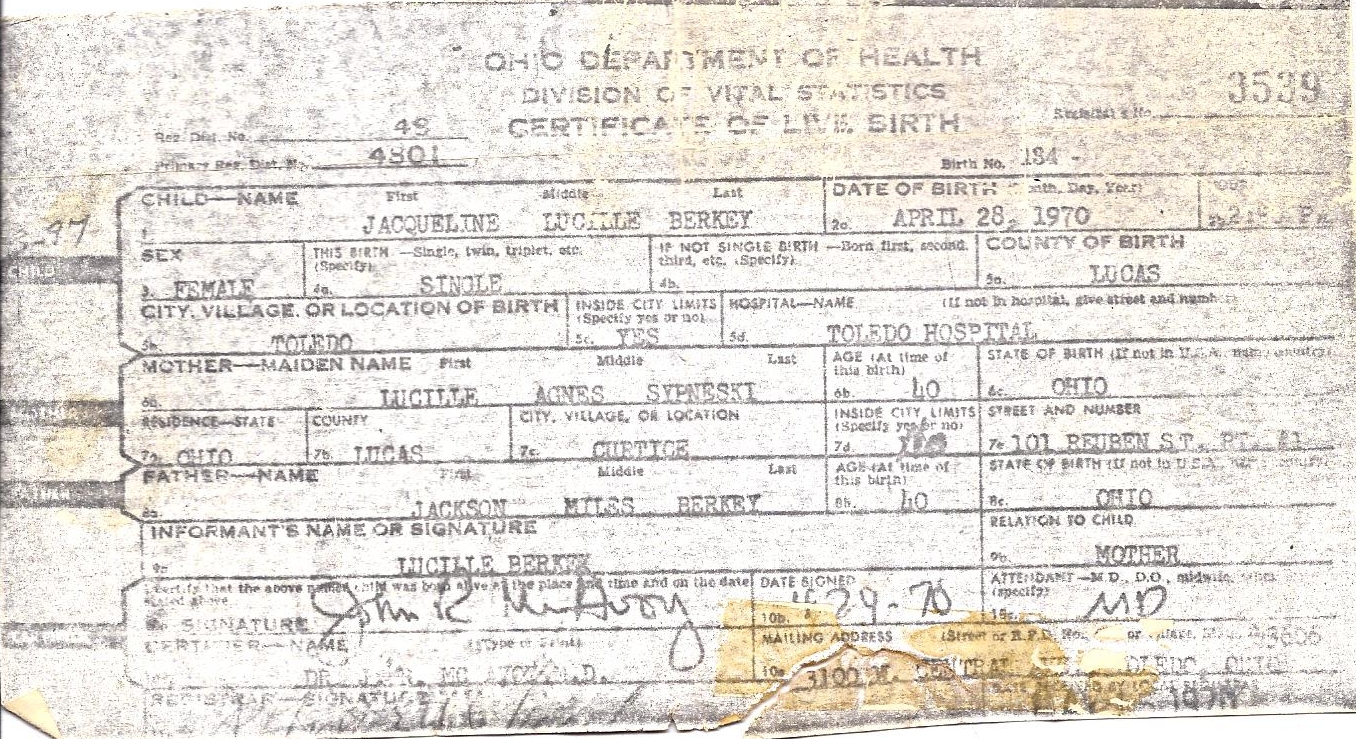 OHIO DEPARTMENT OF HEALTH
DIVISION OF VITAL STATISTICS
CERTIFICATE OF LIVE BIRTH
3539
Reg. Dist. No. 48
Primary Reg. Dist. No. 4801
Birth No. 134 -
CHILD—NAME First Middle Last
DATE OF BIRTH Day, Year)
1. JACQUELINE LUCILLE BERKEY
2a. APRIL 28, 1970
SEX
THIS BIRTH —Single, twin, triplet, etc. (Specify)
IF NOT SINGLE BIRTH —Born first, second, third, etc. (Specify)
COUNTY OF BIRTH
3. FEMALE
4a. SINGLE
4b.
5a. LUCAS
CITY, VILLAGE, OR LOCATION OF BIRTH
INSIDE CITY LIMITS (Specify yes or no)
HOSPITAL—NAME (If not in hospital, give street and number)
5b. TOLEDO
5c. YES
5d. TOLEDO HOSPITAL
MOTHER—MAIDEN NAME First Middle Last
AGE (At time of this birth)
STATE OF BIRTH (If not in U.S.A., name country)
6a. LUCILLE AGNES SYPNESKI
6b. 40
6c. OHIO
RESIDENCE—STATE
COUNTY
CITY, VILLAGE, OR LOCATION
INSIDE CITY LIMITS (Specify yes or no)
STREET AND NUMBER
7a. OHIO
7b. LUCAS
7c. CURTICE
7d.
7e. 101 REUBEN ST., RT. #1
FATHER—NAME First Middle Last
AGE (At time of this birth)
STATE OF BIRTH (If not in U.S.A., name country)
8a. JACKSON MILES BERKEY
8b. 40
8c. OHIO
INFORMANT'S NAME OR SIGNATURE
RELATION TO CHILD
9a. LUCILLE BERKEY
9b. MOTHER
I certify that the above named child was born alive at the place and time and on the date stated above
DATE SIGNED
ATTENDANT —M.D., D.O., midwife, other (specify)
SIGNATURE John R McAvoy
10b. 4 29-70
10c. MD
CERTIFIER—NAME (Type or Print)
MAILING ADDRESS (Street or R.F.D. No.,
DR. J. R. MC
3100 W. CENTRAL OHIO
REGISTRAR—SIGNATURE